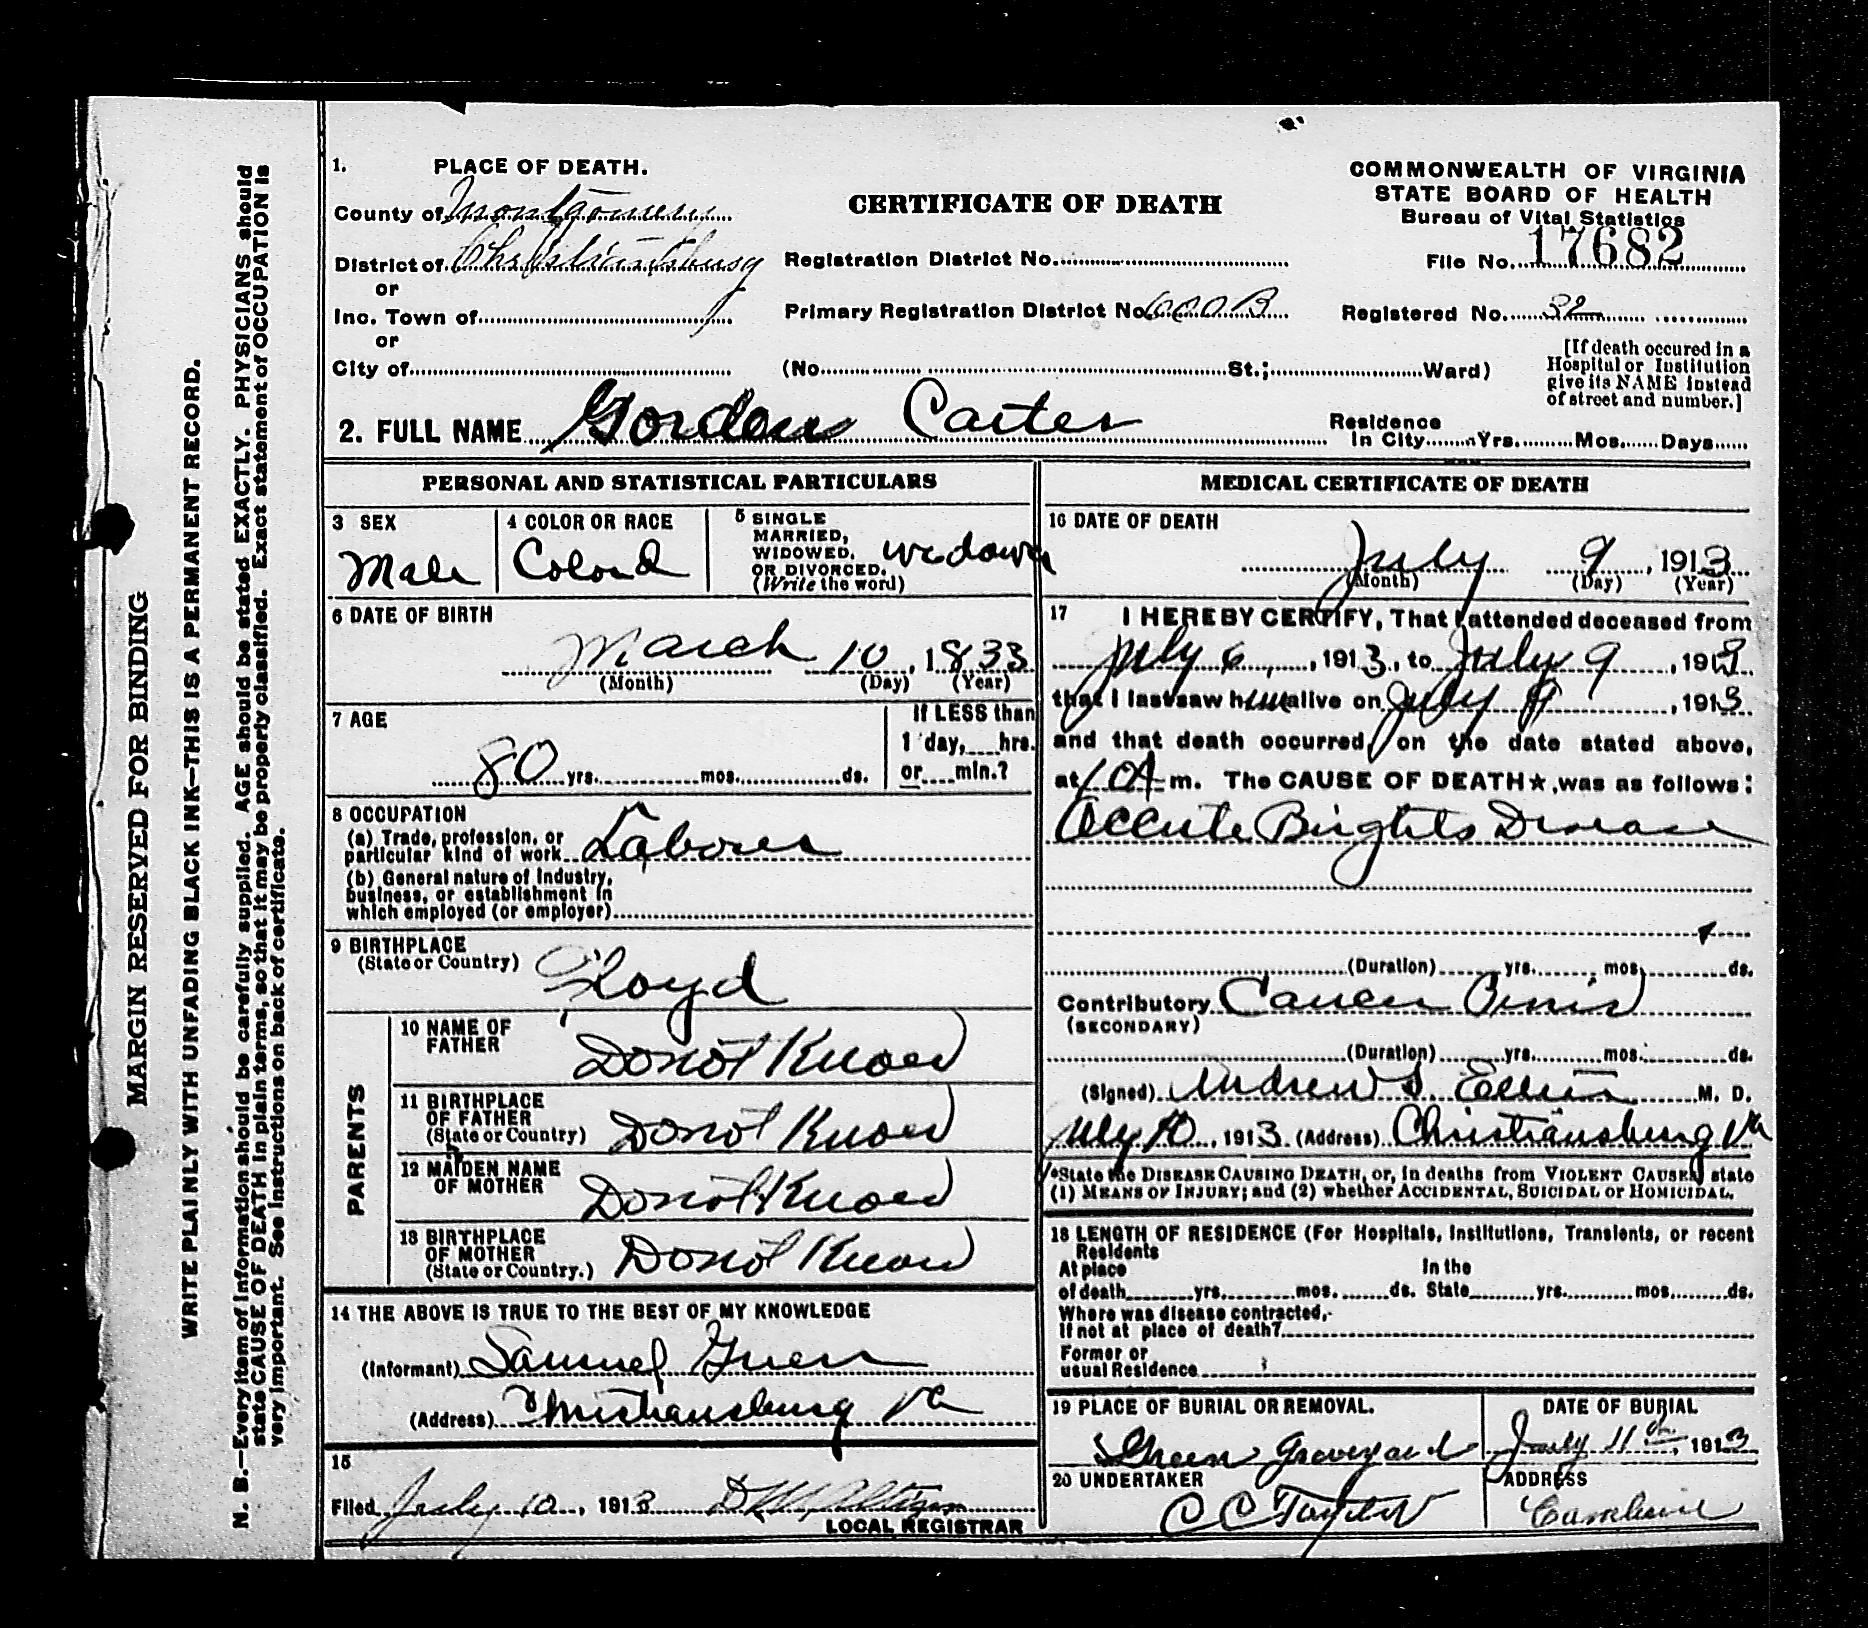 MARGIN RESERVED FOR BINDING
WRITE PLAINLY WITH UNFADING BLACK INK—THIS IS A PERMANENT RECORD.
N. B.—Every item of information should be carefully supplied. AGE should be stated EXACTLY. PHYSICIANS should
state CAUSE OF DEATH in plain terms, so that it may be properly classified. Exact statement of OCCUPATION is
very important. See instructions on back of certificate.
1. PLACE OF DEATH.
County of Montgomery
District of Christiansburg
or
Inc. Town of
or
City of
CERTIFICATE OF DEATH
Registration District No.
Primary Registration District No. 600B
(No. St.; Ward)
COMMONWEALTH OF VIRGINIA
STATE BOARD OF HEALTH
Bureau of Vital Statistics
File No. 17682
Registered No. 32
[If death occured in a
Hospital or Institution
give its NAME instead
of street and number.]
2. FULL NAME Gorden Carter
Residence
In City Yrs. Mos. Days
PERSONAL AND STATISTICAL PARTICULARS
3 SEX
Male
4 COLOR OR RACE
Colord
5 SINGLE
MARRIED,
WIDOWED,
OR DIVORCED.
(Write the word)
widower
6 DATE OF BIRTH
March 10, 1833
(Month) (Day) (Year)
7 AGE
80 yrs. mos. ds.
If LESS than
1 day, hrs.
or min.?
8 OCCUPATION
(a) Trade, profession, or
particular kind of work Laborer
(b) General nature of Industry,
business, or establishment in
which employed (or employer)
9 BIRTHPLACE
(State or Country)
Floyd
PARENTS
10 NAME OF
FATHER
Do not Know
11 BIRTHPLACE
OF FATHER
(State or Country)
Do not Know
12 MAIDEN NAME
OF MOTHER
Do not Know
13 BIRTHPLACE
OF MOTHER
(State or Country.)
Do not Know
14 THE ABOVE IS TRUE TO THE BEST OF MY KNOWLEDGE
(Informant) Samuel Green
(Address) Christiansburg Va
15
Filed July 10, 1913
LOCAL REGISTRAR
MEDICAL CERTIFICATE OF DEATH
16 DATE OF DEATH
July 9, 1913
(Month) (Day) (Year)
17 I HEREBY CERTIFY, That I attended deceased from
July 6, 1913, to July 9, 1913
that I last saw him alive on July 9, 1913
and that death occurred, on the date stated above,
at 1 A m. The CAUSE OF DEATH★, was as follows:
Accute Brights Disease
(Duration) yrs. mos. ds.
Contributory Cancer Penis
(SECONDARY)
(Duration) yrs. mos. ds.
(Signed) Andrew S. M. D.
July 10, 1913 (Address) Christiansburg Va
*State the DISEASE CAUSING DEATH, or, in deaths from VIOLENT CAUSES, state
(1) MEANS OF INJURY; and (2) whether ACCIDENTAL, SUICIDAL or HOMICIDAL.
18 LENGTH OF RESIDENCE (For Hospitals, Institutions, Transients, or recent
Residents
At place In the
of death yrs. mos. ds. State yrs. mos. ds.
Where was disease contracted,
If not at place of death?
Former or
usual Residence
19 PLACE OF BURIAL OR REMOVAL.
Green Graveyard
DATE OF BURIAL
July 11th, 1913
20 UNDERTAKER
C C Taylor
ADDRESS
Cambria